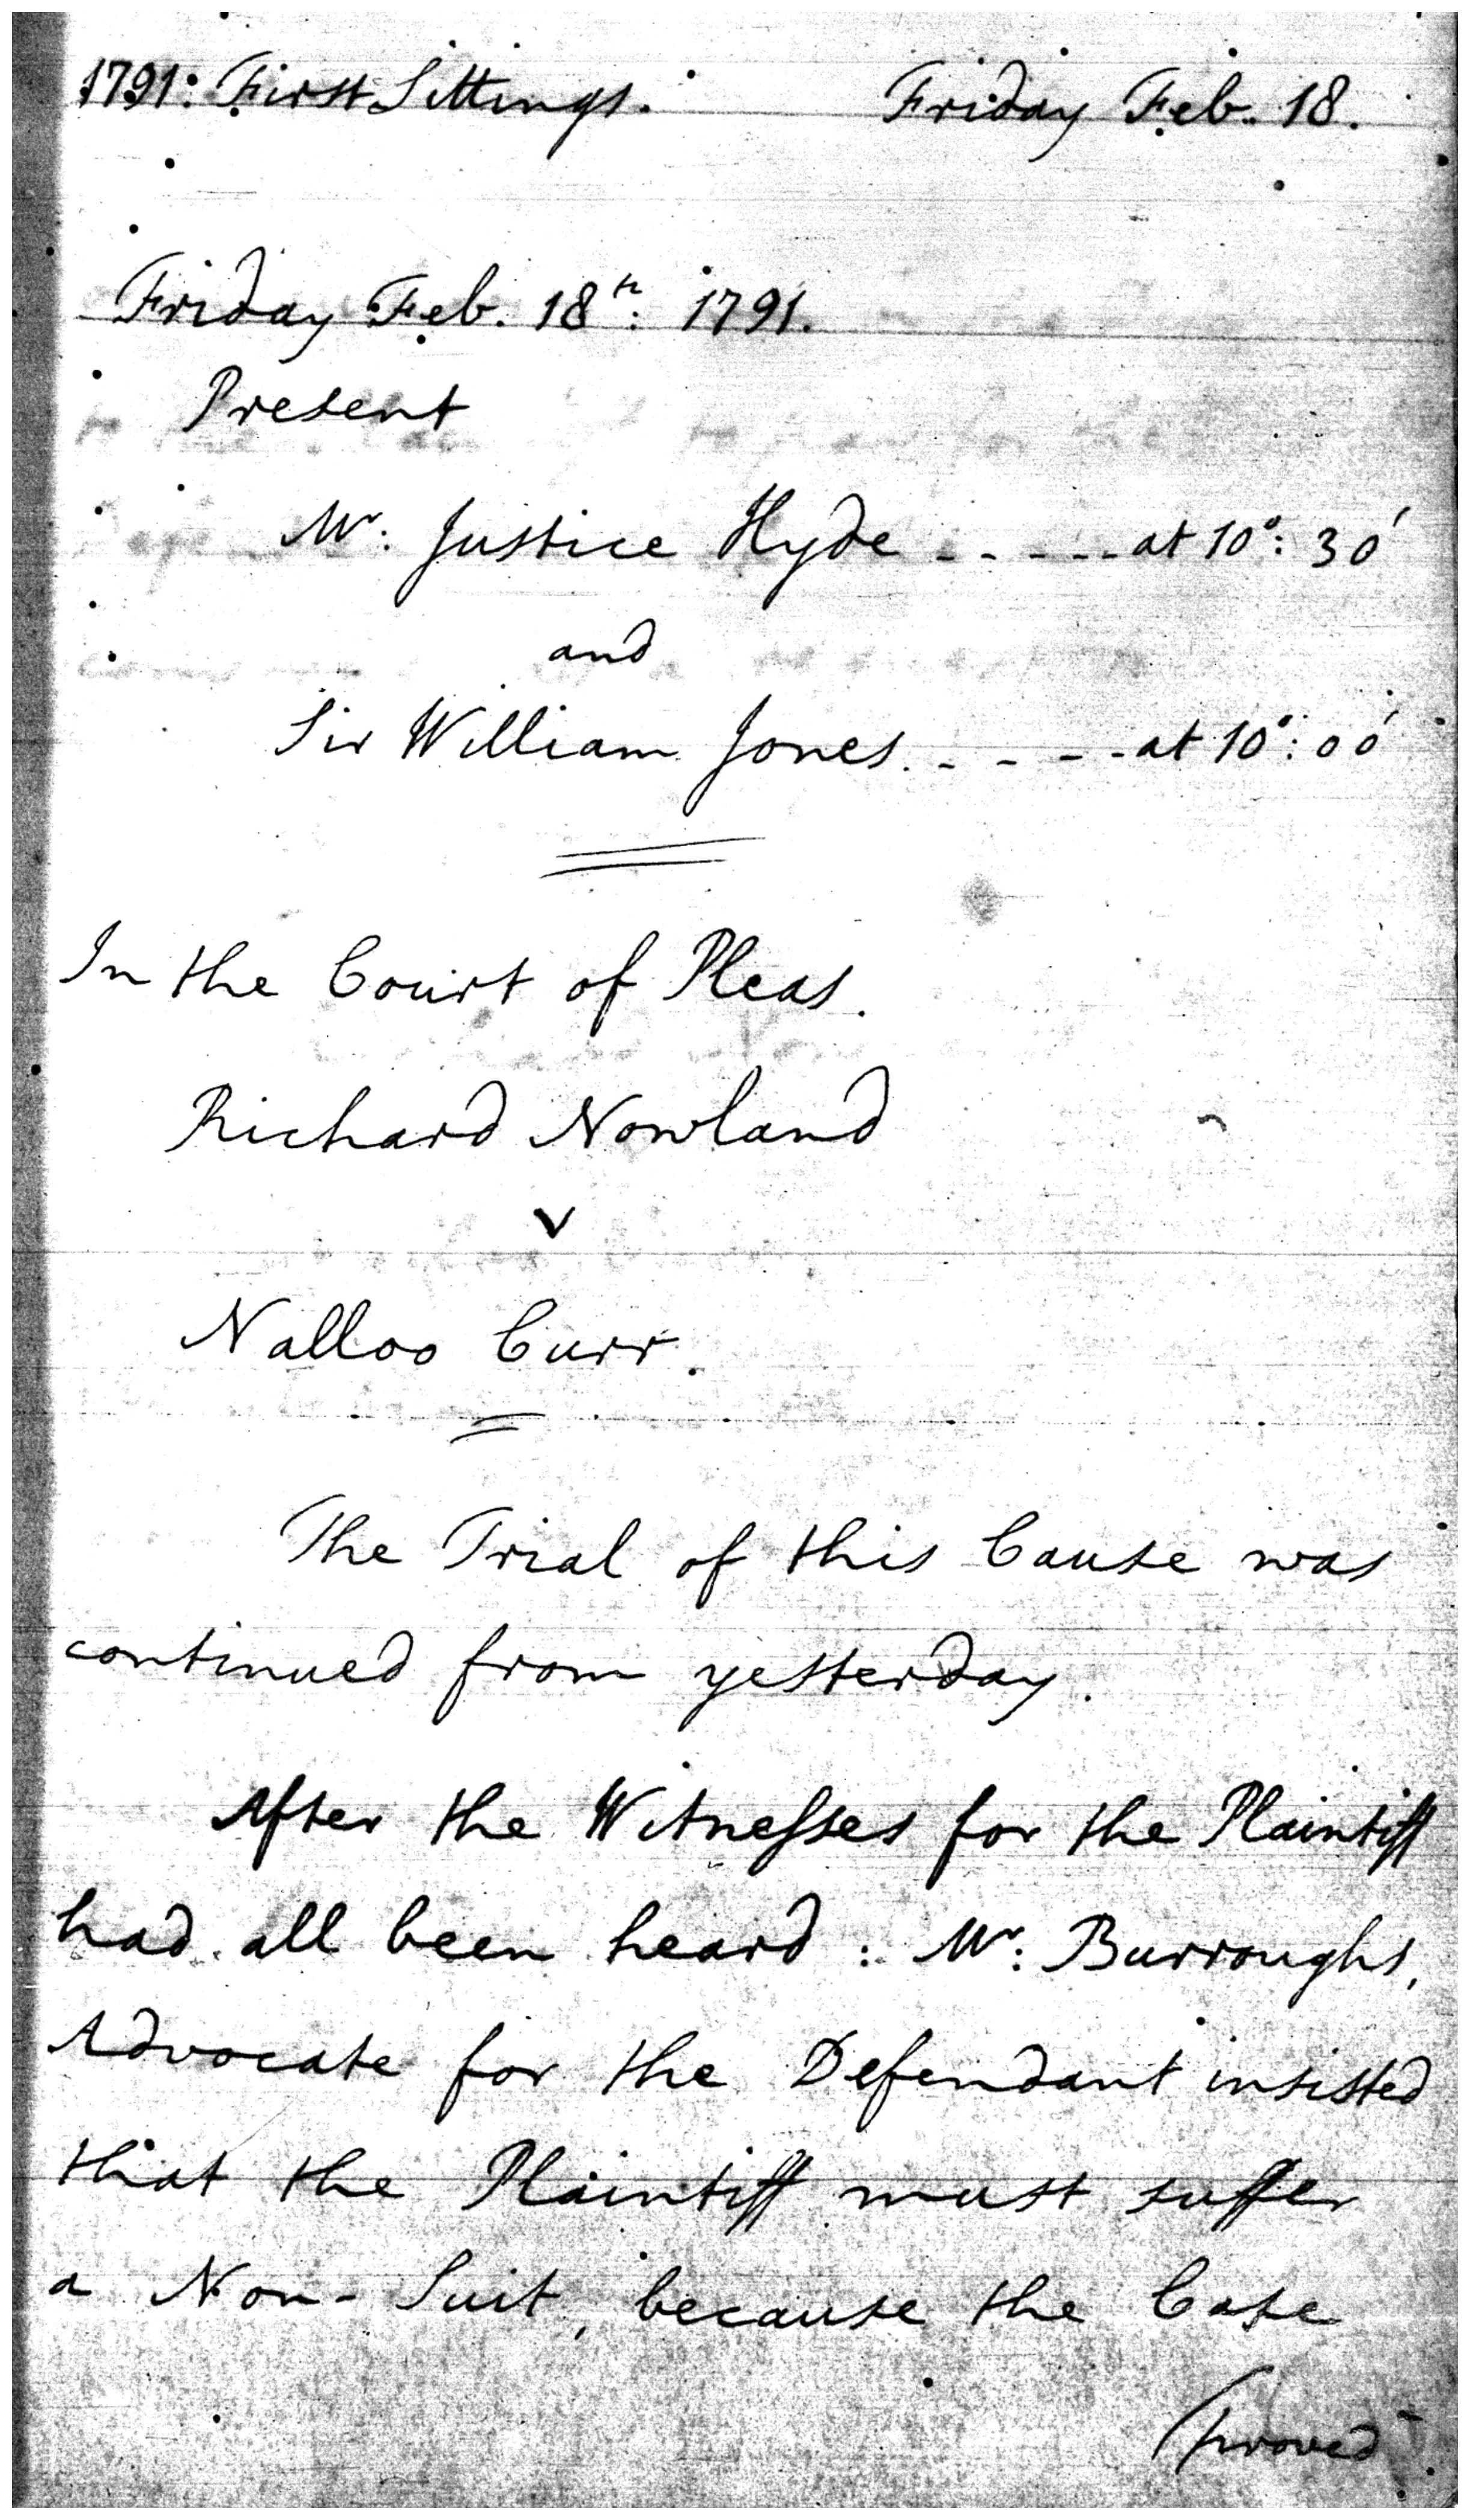 1791: First Sittings. Friday Feb. 18.
Friday Feb. 18th: 1791.
Present
Mr. Justice Hyde - - - - - at 10°: 30'
and
Sir William Jones. - - - - at 10°: 00'
In the Court of Pleas.
Richard Nowland
v
Nalloo Curr.
The Trial of this Cause was
continued from yesterday.
After the Witnesses for the Plaintiff
had all been heard: Mr: Burroughs,
Advocate for the Defendant insisted
that the Plaintiff must suffer
a Non-Suit, because the Case
(proved